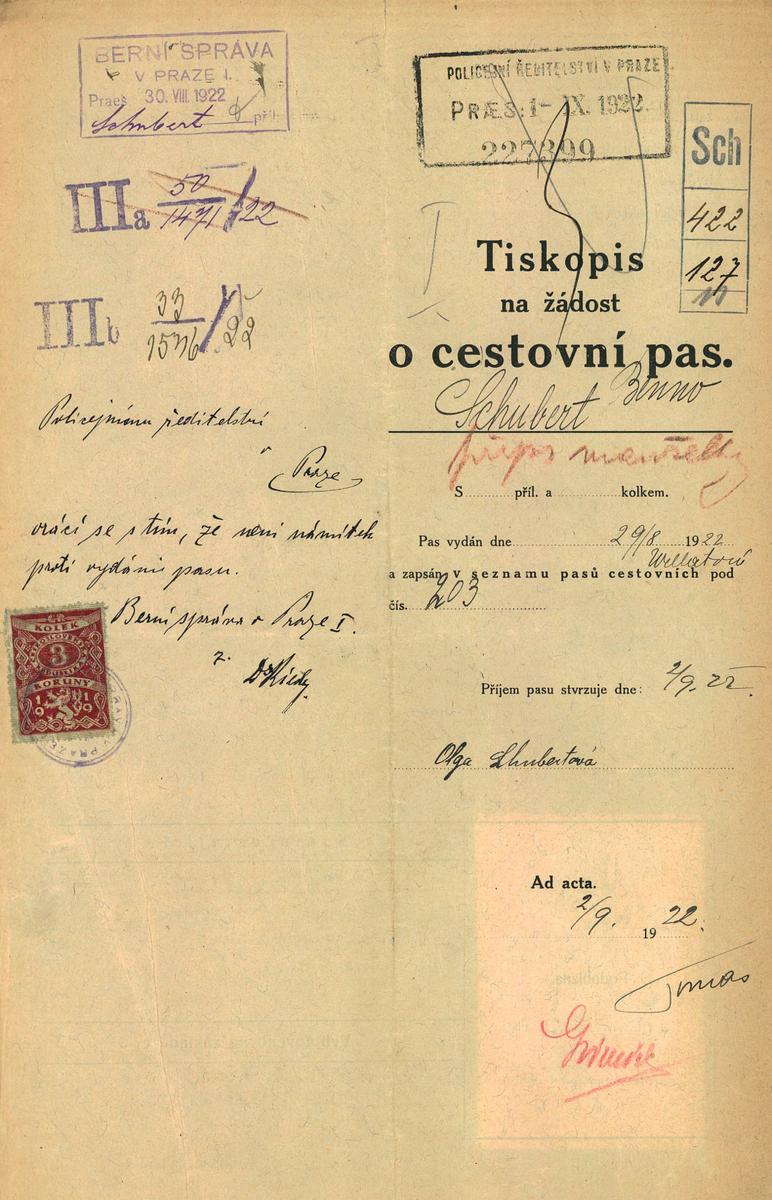 BERNÍ SPRÁVA
V PRAZE I.
Praes 30. VIII. 1922
Schubert příl.
IIIa 50/1471/22
IIIb 33/1576/22
Policejnímu ředitelství
v Praze
vrací se s tím, že není námitek
proti vydání pasu.
Berní správa v Praze I.
KOLEK
3
KORUNY
1919
POLICEJNÍ ŘEDITELSTVÍ V PRAZE
PRÆS: 1- IX. 1922
227899
Sch
422
127
Tiskopis
na žádost
o cestovní pas.
Schubert Benno
S příl. a kolkem.
Pas vydán dne 29/8 1922
a zapsán v seznamu pasů cestovních pod
čís. 203
Příjem pasu stvrzuje dne: 2/9. 22.
Olga Schubertová
Ad acta.
2/9. 1922.